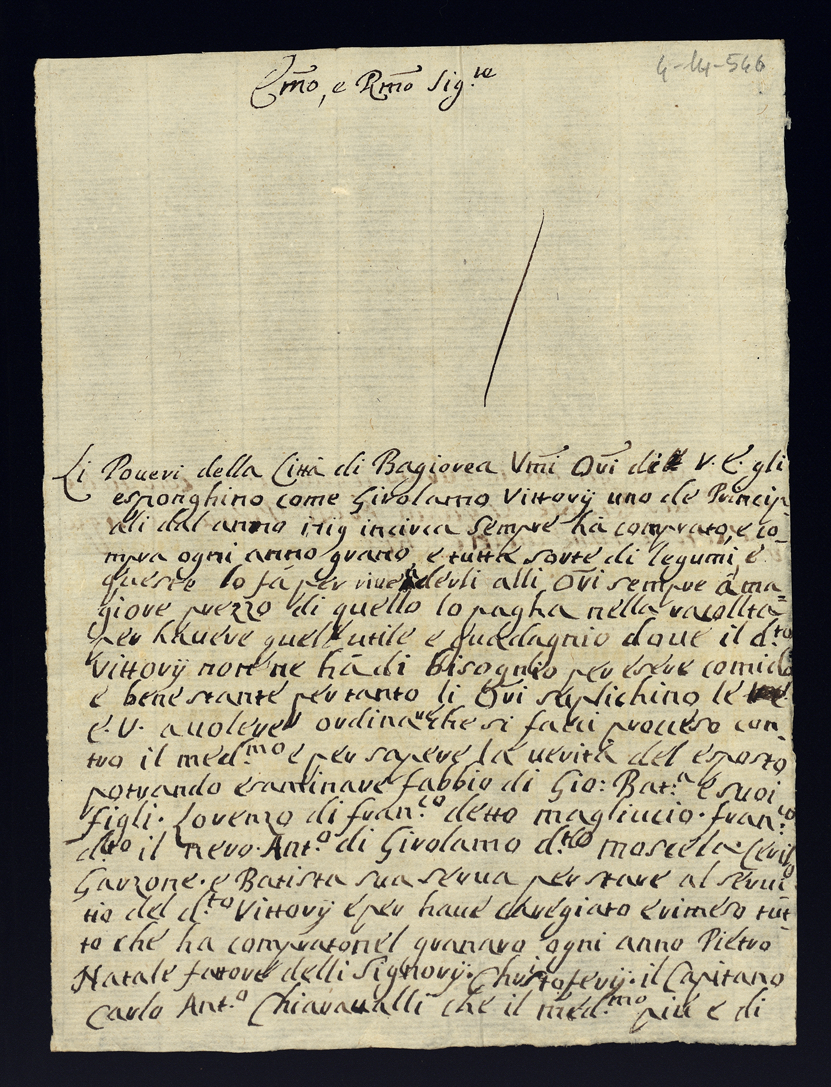 4-14-546
Em̃o, e Rm̃o Sig.re
Li Poueri della Città di Bagiorea Vm̃i Or̃i di V. E. gli
esponghino come Girolamo Vittorij uno de Princip
ali dal anno 1719 incirca sempre ha comprato, e co-
mpra ogni anno grano e tutta sorte di legumi, e
queste lo fà per riuederli alli Or̃i sempre à ma
giore prezzo di quello lo pagha nella racolta=
per hauere quell utile e guadagnio doue il d.to
Vittorij non ne hà di bisognio per esere comido
e bene stante per tanto li Or̃i suplichino le
E. V. a uolere ordinare che si facci proceso con
tro il med.mo e per sapere la uerità del esposto
potrando esaminare fabbio di Gio: Bat.a e suoi
figli. Lorenzo di fran.co detto magliucio. fran.co
d.to il nero. Ant.o di Girolamo d.to moscela.
Garzone. e Batista sua serua per stare al serui
tio del d.to Vittorij e per haue caregiato e rimeso tut
to che ha comprato nel granaro ogni anno Pietro
Natale fatore delli Signorij. Christoferij. il Capitano
Carlo Ant.o Chiaraualli che il med.mo più e di